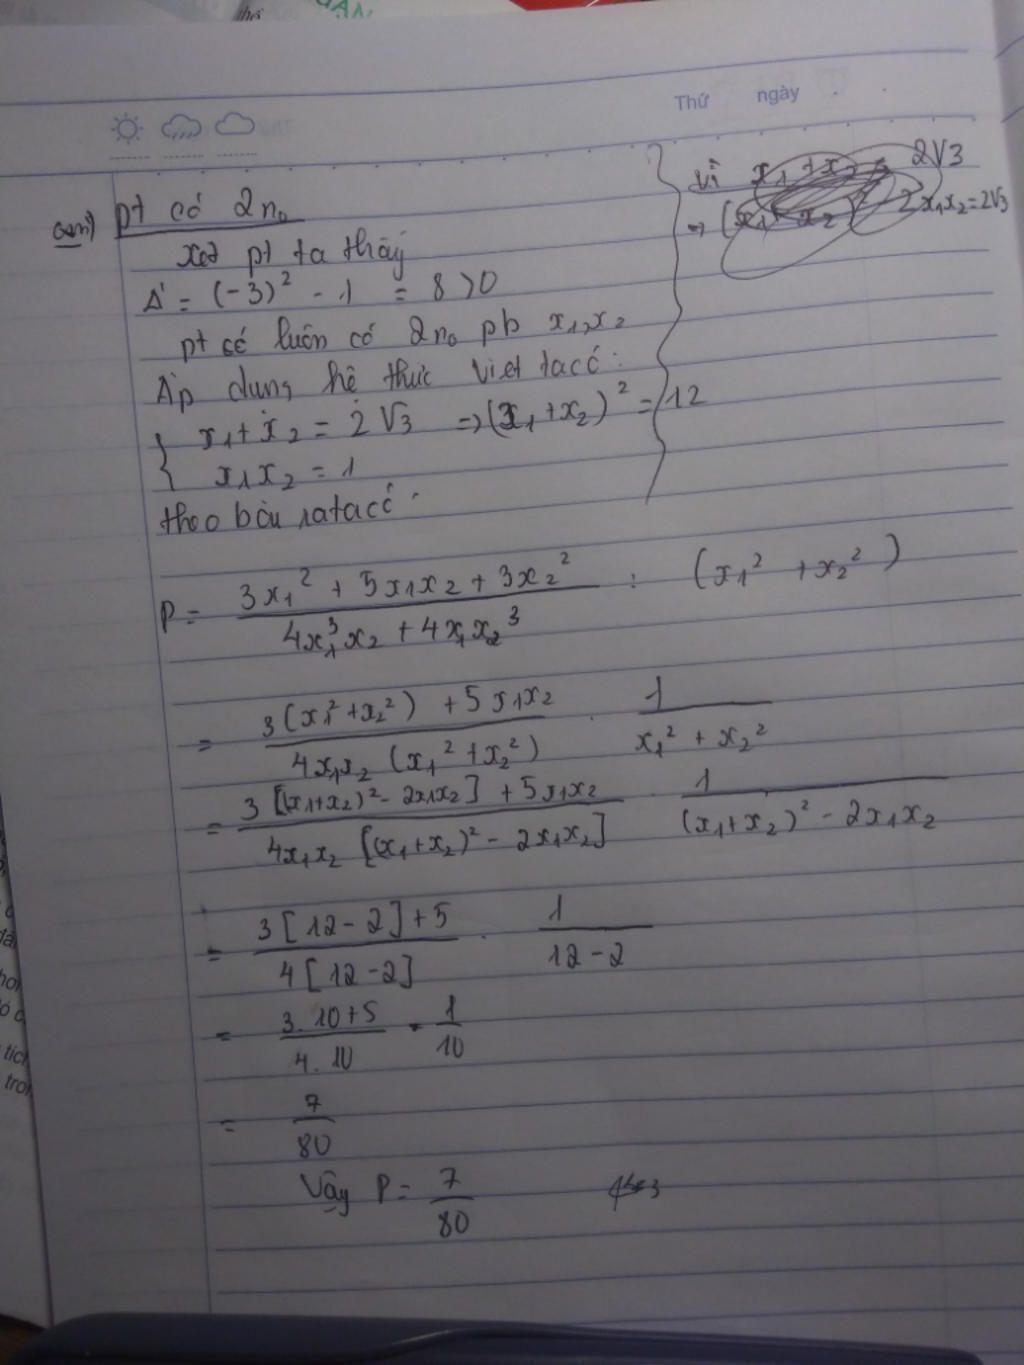 Thứ ngày
vì x₁ + x₂ = 2√3
⇒ (x₁ + x₂)² 2x₁x₂ = 2√3
cm) pt có 2n₀
xét pt ta thấy
Δ' = (-3)² - 1 = 8 > 0
pt có luôn có 2n₀ pb x₁, x₂
Áp dụng hệ thức Viet ta có:
x₁ + x₂ = 2√3 ⇒ (x₁ + x₂)² = 12
x₁x₂ = 1
theo bài ra ta có
P = (3x₁² + 5x₁x₂ + 3x₂²) / (4x₁³x₂ + 4x₁x₂³) : (x₁² + x₂²)
= (3(x₁² + x₂²) + 5x₁x₂) / (4x₁x₂ (x₁² + x₂²)) . 1 / (x₁² + x₂²)
= (3[(x₁+x₂)² - 2x₁x₂] + 5x₁x₂) / (4x₁x₂ [(x₁+x₂)² - 2x₁x₂]) . 1 / ((x₁+x₂)² - 2x₁x₂)
= (3[12 - 2] + 5) / (4[12 - 2]) . 1 / (12 - 2)
= (3.10 + 5) / (4.10) . 1/10
= 7/80
Vậy P = 7/80